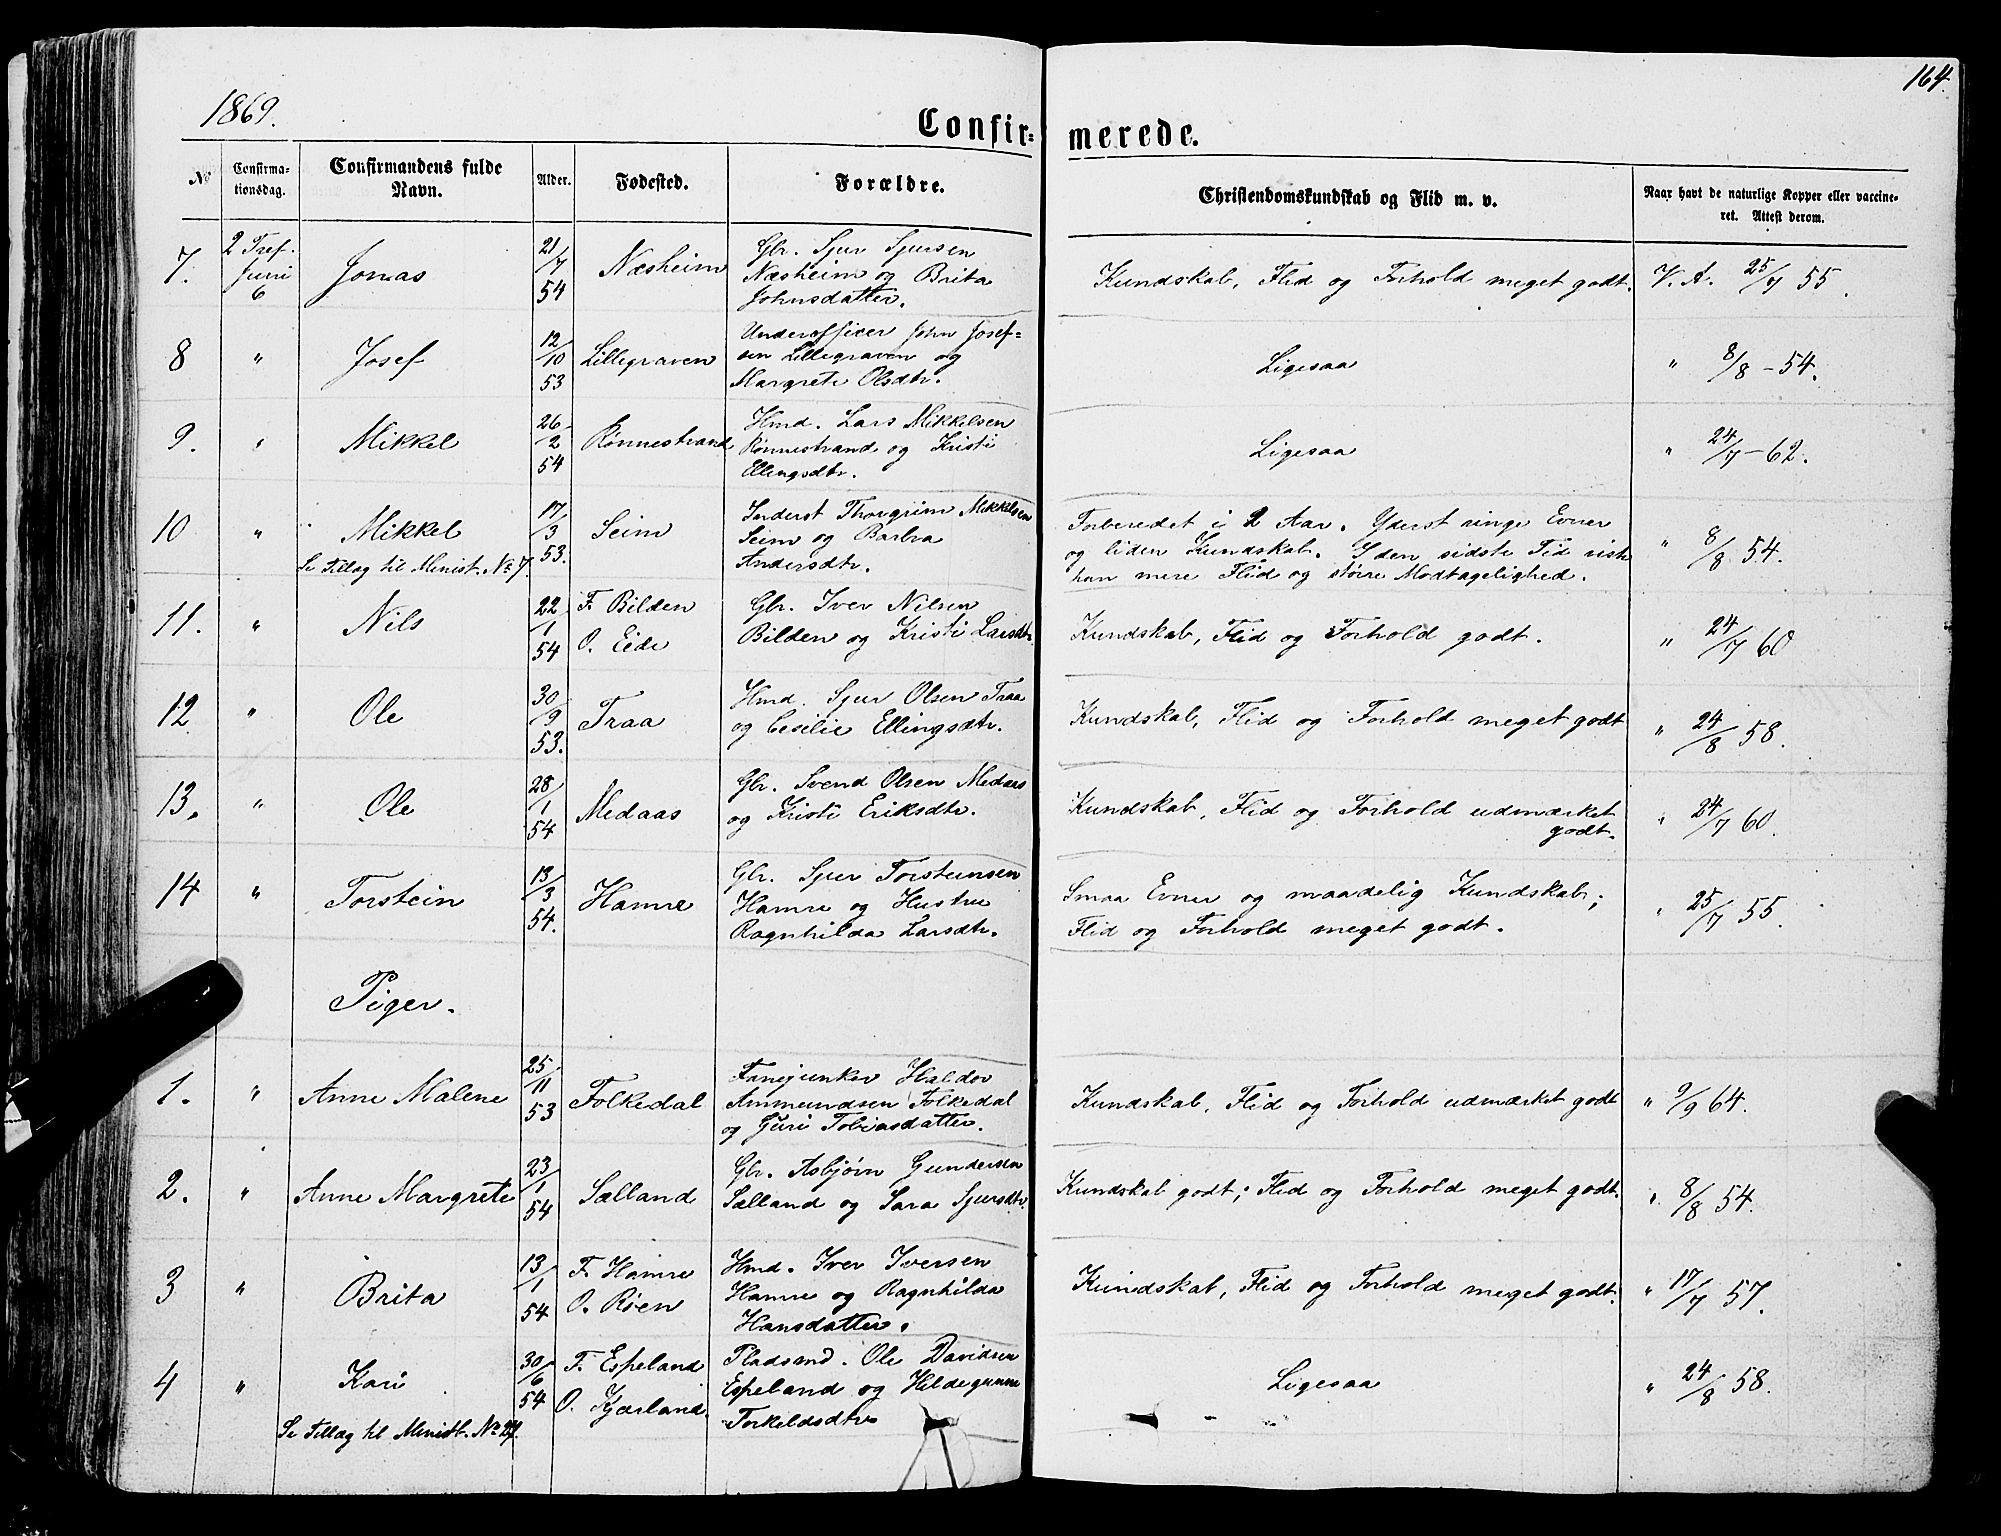 164.
1869.
Confir=
merede.
No
Confirma-
tionsdag.
Confirmandens fulde
Navn.
Alder.
Fødested.
Forældre.
Christendomskundskab og Flid m. v.
Naar havt de naturlige Kopper eller vaccine-
ret. Attest derom.
7. 2 Tref. Juni 6 Jonas 21/7 54 Næsheim Gbr. Sjur Sjursen
Næsheim og Brita
Johnsdatter.
Kundskab, Flid og Forhold meget godt. V. A. 25/7 55.
8 " Josef 12/10 53 Lillegraven Underofficer John Josef=
sen Lillegraven og
Margrete Olsdtr.
Ligesaa " 8/8 - 54.
9. " Mikkel 26/2 54 Rønnestrand Hmd. Lars Mikkelsen
Rønnestrand og Kristi
Ellingsdtr.
Ligesaa " 24/7 - 62.
10 " Mikkel 17/3 53. Seim Inderst Thorgrim Mikkelsen
Se Tillæg til Minist. No 7.
Seim og Barbra
Andersdtr.
Forberedet i 2 Aar. Yderst ringe Evner
og liden Kundskab. I den sidste Tid viste
han mere Flid og større Modtagelighed.
" 8/8 54.
11. " Nils 22/1 54 F. Bilden
O. Eide
Gbr. Iver Nilsen
Bilden og Kristi Larsdtr.
Kundskab, Flid og Forhold godt. " 24/7 60
12 " Ole 30/9 53. Traa Hmd. Sjur Olsen Traa
og Cecilie Ellingsdtr.
Kundskab, Flid og Forhold meget godt " 24/8 58.
13. " Ole 28/1 54 Medaas Gbr. Svend Olsen Medaas
og Kristi Eriksdtr.
Kundskab, Flid og Forhold udmærket
godt. " 24/7 60.
14 " Torstein 13/3 54. Hamre Gbr. Sjur Torsteinsen
Hamre og Hustru
Ragnhilda Larsdtr.
Smaa Evner og maadelig Kundskab;
Flid og Forhold meget godt. " 25/7 55.
Piger.
1. " Anne Malene 25/11 53 Folkedal Fanejunker Haldor
Ammundsen Folkedal
og Guri Tobiasdatter.
Kundskab, Flid og Forhold udmærket godt " 9/9 64.
2. " Anne Margrete 23/1 54 Sælland Gbr. Asbjørn Gundersen
Sælland og Sara Sjursdtr.
Kundskab godt; Flid og Forhold meget godt. " 8/8 54.
3 " Brita 13/1 54 F. Hamre
O. Røen
Hmd. Iver Iversen
Hamre og Ragnhilda
Hansdatter.
Kundskab, Flid og Forhold meget godt. " 17/7 57.
4 " Kari 30/6 54 F. Espeland
O. Kjærland.
Pladsmd. Ole Davidsen
Espeland og Hildegunne
Torkeldsdtr
Se Tillæg til Ministb. No 27.
Ligesaa " 24/8 58.